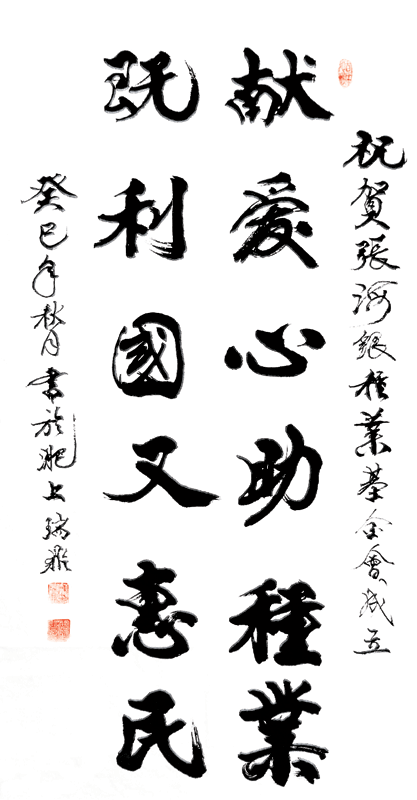 祝賀張海銀種業基金會成立
献爱心助種業
既利國又惠民
癸巳年秋月書於肥上瑞